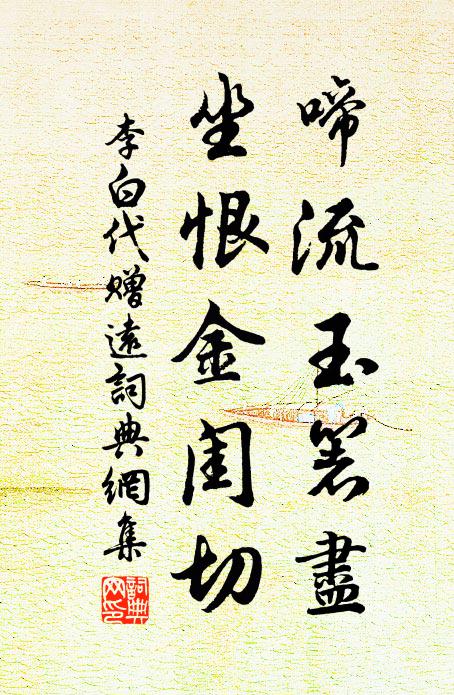 啼流玉箸盡
坐恨金閨切
李白代贈遠詞典網集
詞典
网印